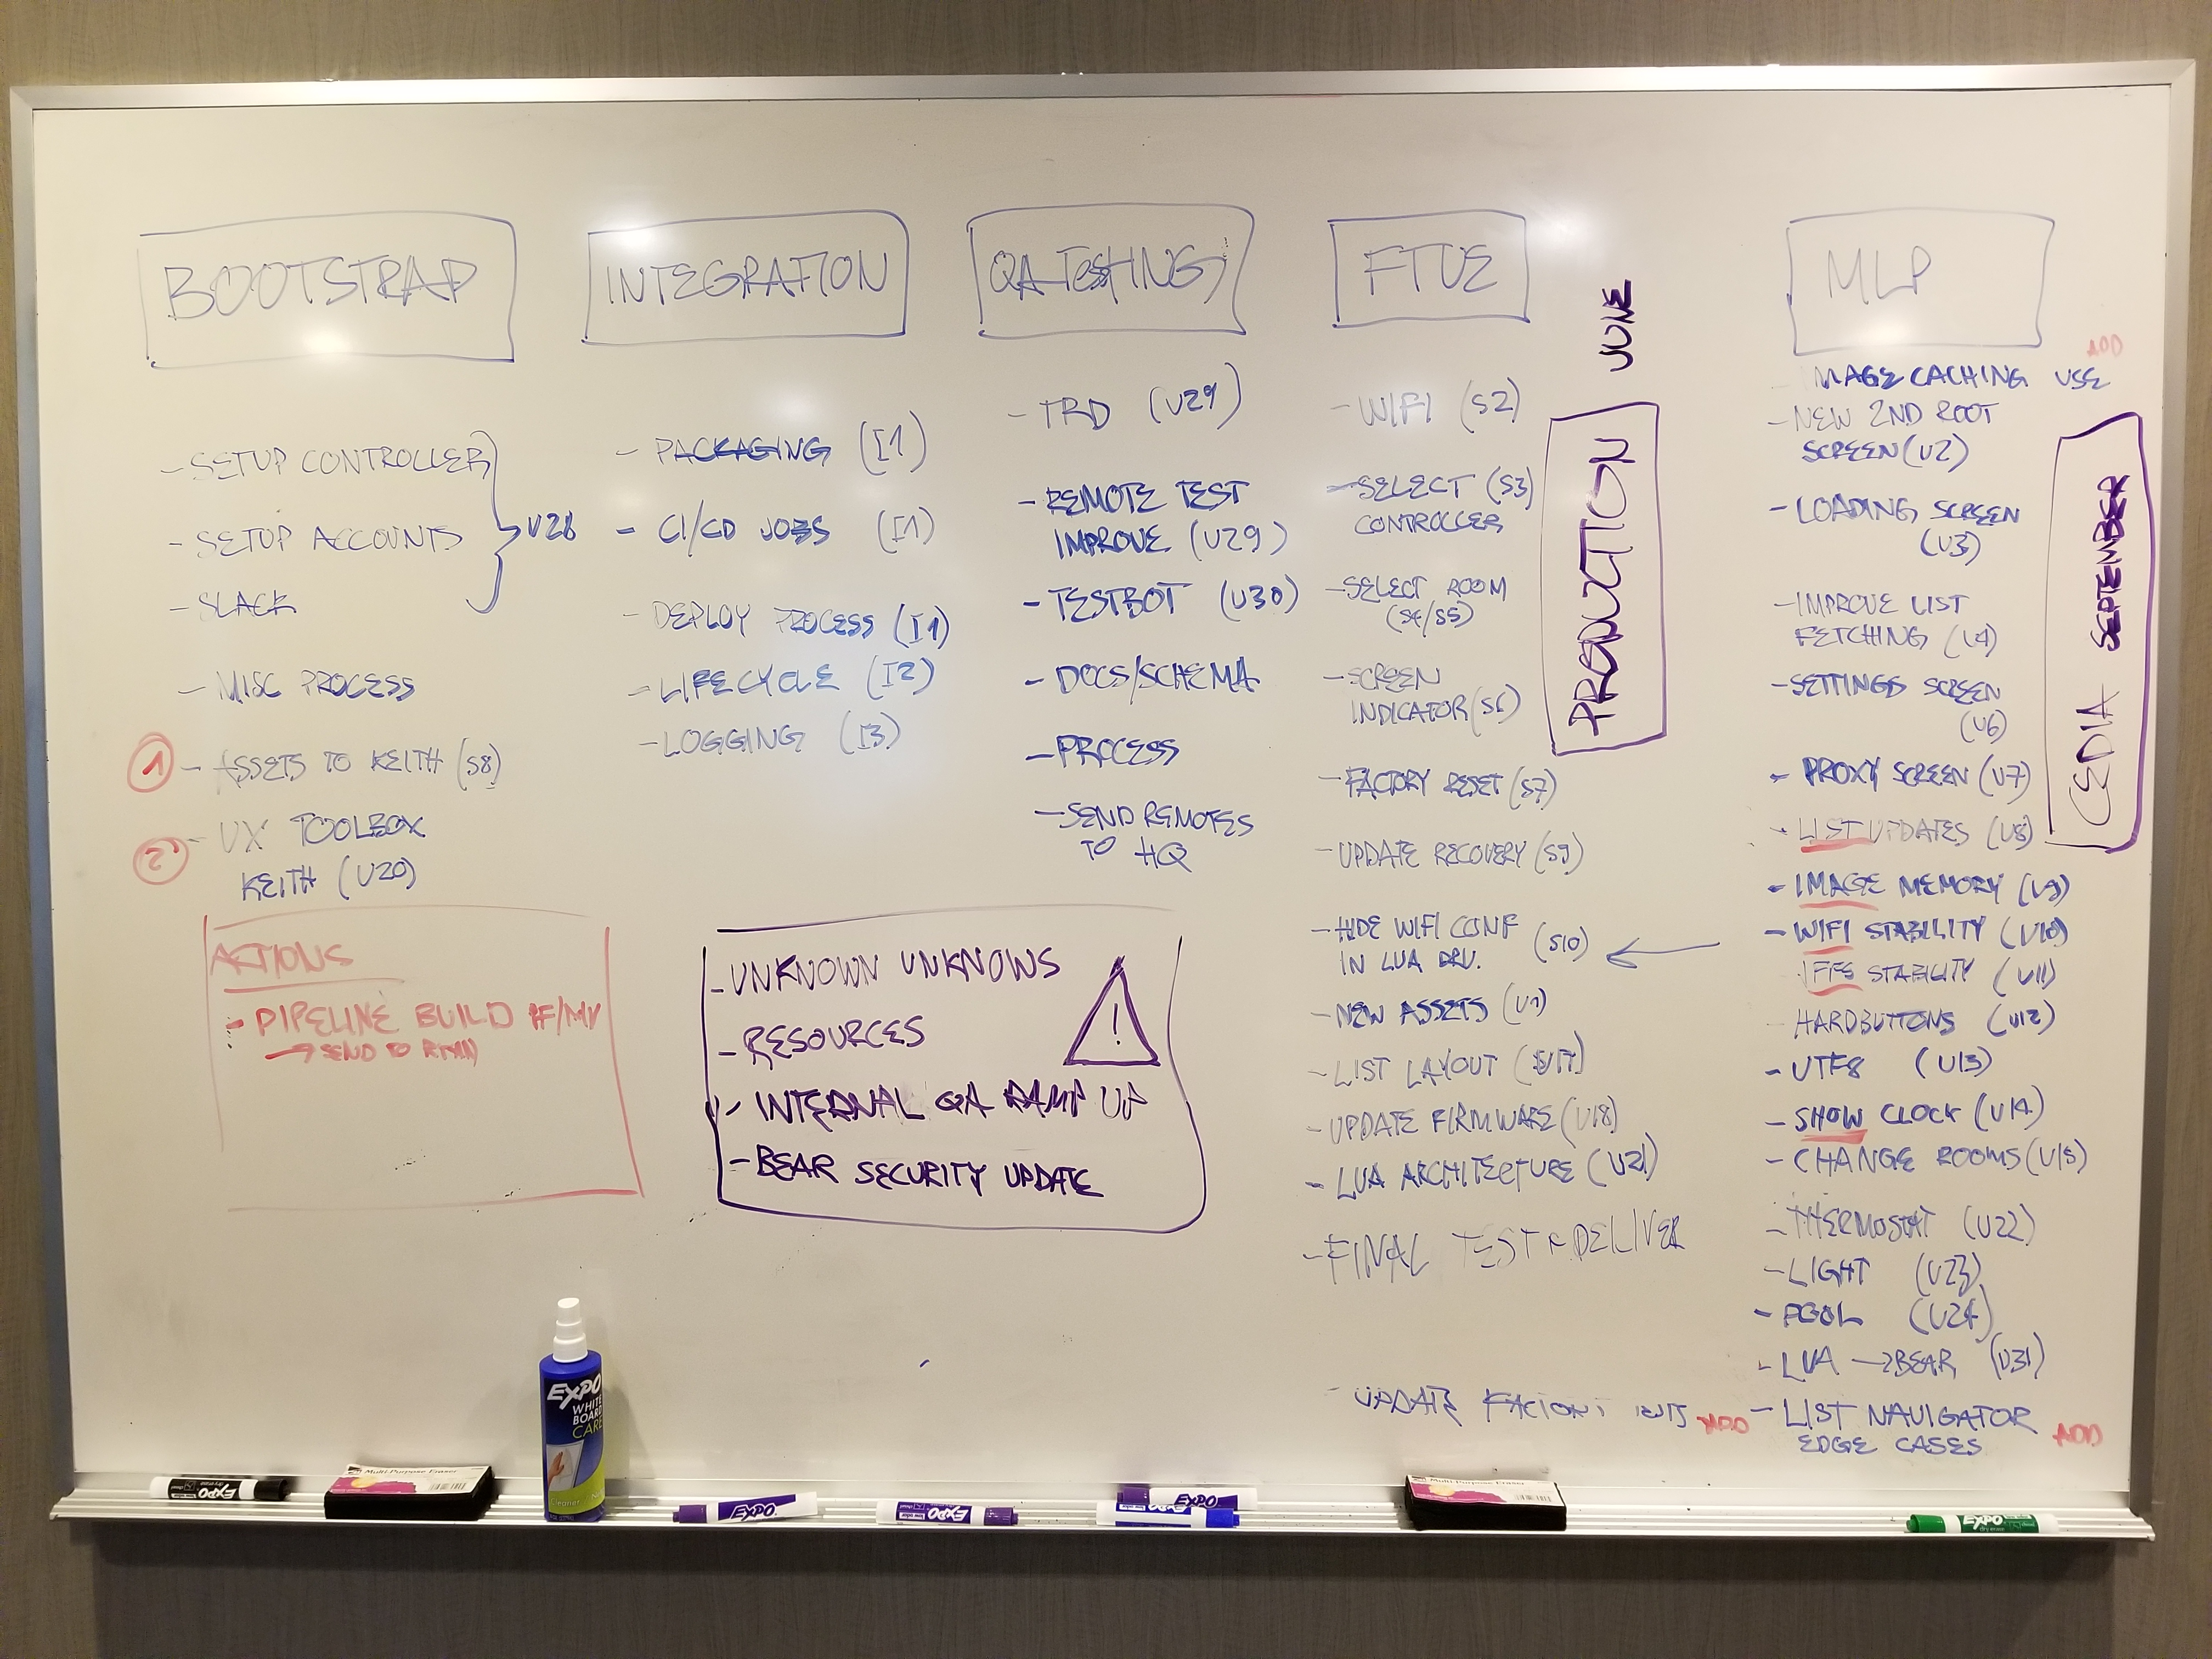 BOOTSTRAP
- SETUP CONTROLLER
- SETUP ACCOUNTS
- SLACK
U28
- MISC PROCESS
1 - ASSETS TO KEITH (S8)
2 - UX TOOLBOX
KEITH (U20)
ACTIONS
- PIPELINE BUILD
→ SEND TO
INTEGRATION
- PACKAGING (I1)
- CI/CD JOBS (I1)
- DEPLOY PROCESS (I1)
- LIFECYCLE (I2)
- LOGGING (I3)
QA TESTING
- TRD (U29)
- REMOTE TEST
IMPROVE (U29)
- TESTBOT (U30)
- DOCS/SCHEMA
- PROCESS
- SEND REMOTES
TO HQ
- UNKNOWN UNKNOWS
- RESOURCES
- INTERNAL QA RAMP UP
- BEAR SECURITY UPDATE
!
FTUE
- WIFI (S2)
- SELECT (S3)
CONTROLLER
- SELECT ROOM
(S4/S5)
- SCREEN
INDICATOR (S6)
- FACTORY RESET (S7)
- UPDATE RECOVERY (S9)
- HIDE WIFI CONF (S10)
IN LUA DRV.
- NEW ASSETS (U1)
- LIST LAYOUT (U17)
- UPDATE FIRMWARE (U18)
- LUA ARCHITECTURE (U21)
- FINAL TEST & DELIVER
- UPDATE ADD
JUNE
PRODUCTION
MLP
ADD
IMAGE CACHING USE
- NEW 2ND ROOT
SCREEN (U2)
- LOADING SCREEN
(U3)
- IMPROVE LIST
FETCHING (U4)
- SETTINGS SCREEN
(U6)
- PROXY SCREEN (U7)
- LIST UPDATES (U8)
- IMAGE MEMORY (U9)
- WIFI STABILITY (U10)
STABILITY (U11)
- HARDBUTTONS (U12)
- UTF8 (U13)
- SHOW CLOCK (U14)
- CHANGE ROOMS (U15)
- THERMOSTAT (U22)
- LIGHT (U23)
- POOL (U24)
- LUA → BEAR (U31)
- LIST NAVIGATOR
EDGE CASES ADD
CEDIA SEPTEMBER
EXPO
WHITE
BOARD
CARE
Cleaner
Multi-Purpose Eraser
EXPO
EXPO
EXPO
EXPO
Multi-Purpose Eraser
EXPO